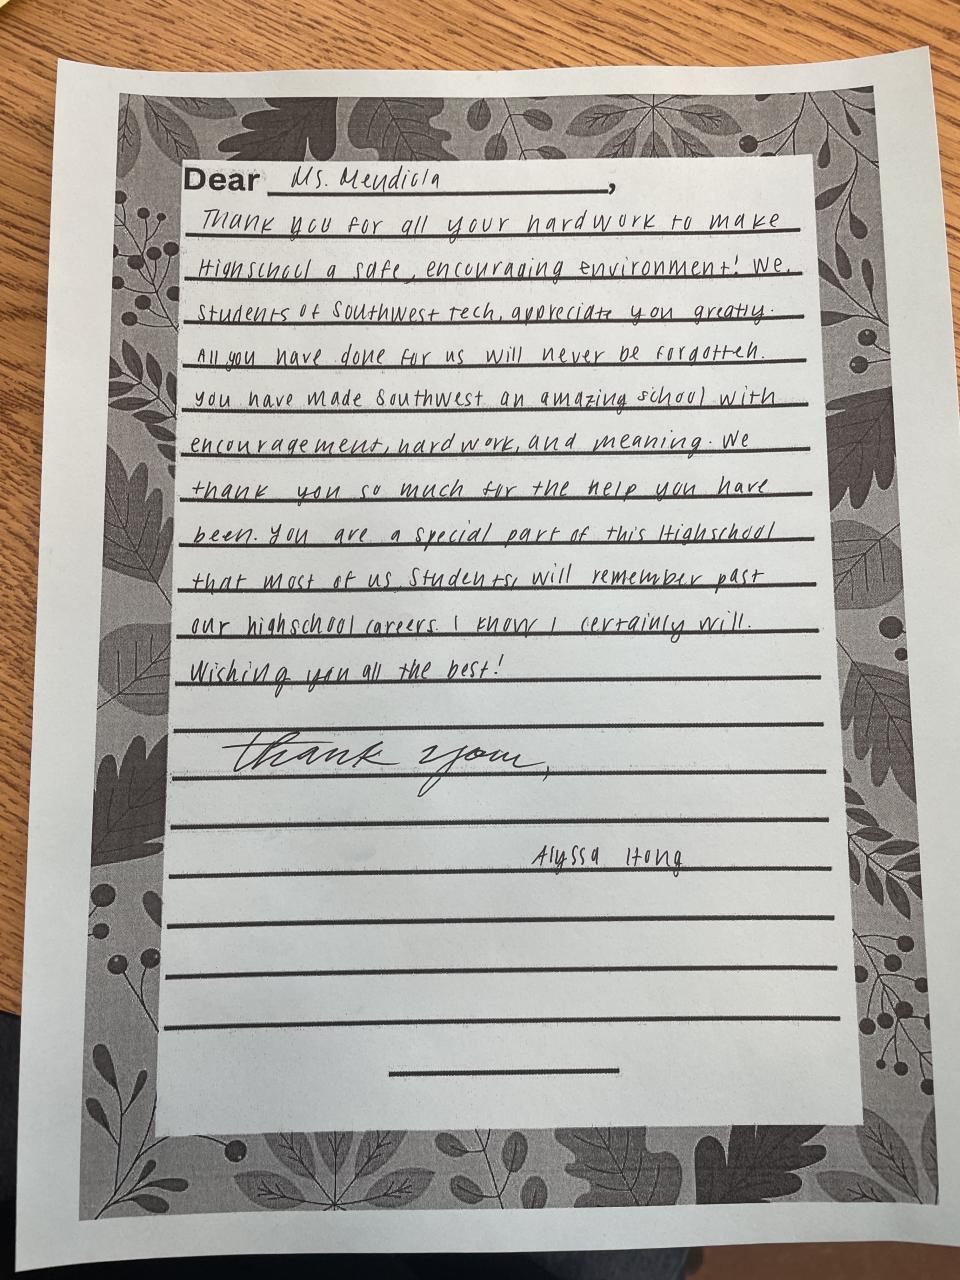 Dear Ms. Mendiola,
Thank you for all your hardwork to make
Highschool a safe, encouraging environment! We,
students of Southwest Tech, appreciate you greatly.
All you have done for us will never be forgotten.
You have made Southwest an amazing school with
encouragement, hard work, and meaning. We
thank you so much for the help you have
been. You are a special part of this Highschool
that most of us, students, will remember past
our highschool careers. I know I certainly will.
Wishing you all the best!
thank you,
Alyssa Hong